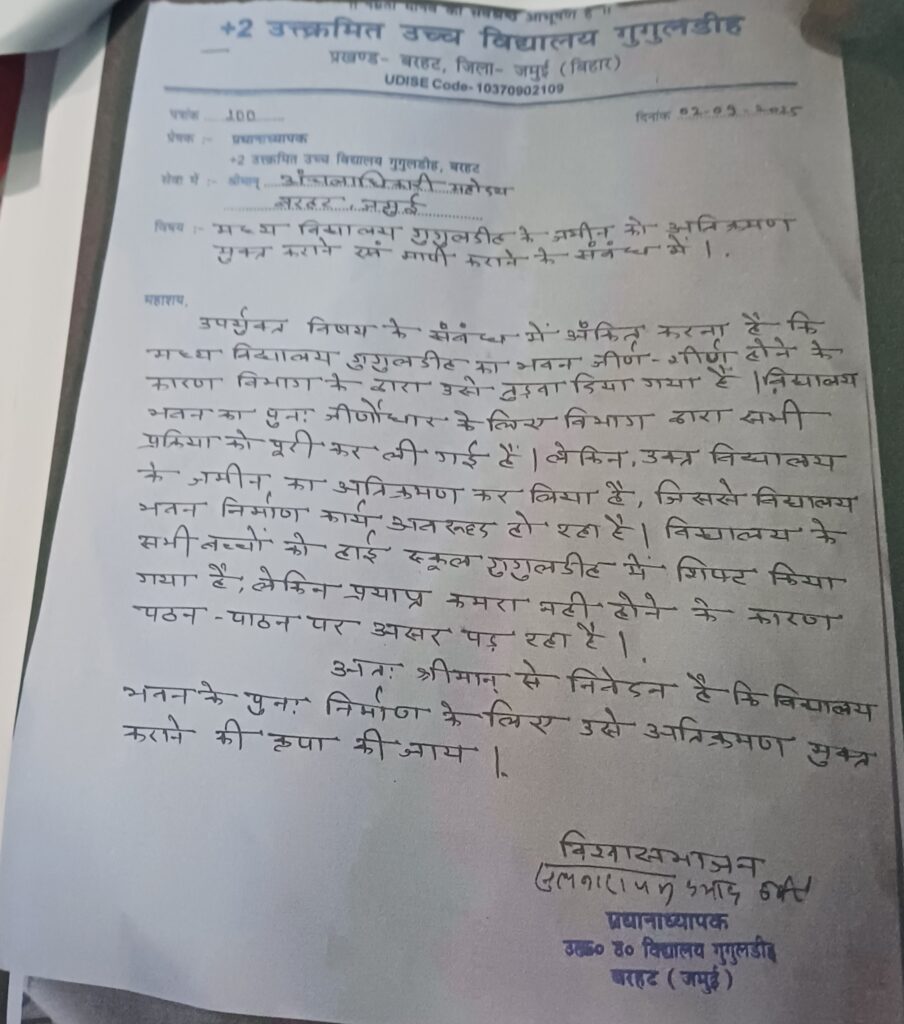 ।। नम्रता मानव का सर्वश्रेष्ठ आभूषण है ।।
+2 उत्क्रमित उच्च विद्यालय गुगुलडीह
प्रखण्ड- बरहट, जिला- जमुई (बिहार)
UDISE Code- 10370902109
पत्रांक 100 दिनांक 02-09-2025
प्रेषक :- प्रधानाध्यापक
+2 उत्क्रमित उच्च विद्यालय गुगुलडीह, बरहट
सेवा में :- श्रीमान् अंचलाधिकारी महोदय
बरहट, जमुई
विषय :- मध्य विद्यालय गुगुलडीह के जमीन को अतिक्रमण
मुक्त कराने एवं मापी कराने के संबंध में ।
महाशय,
उपर्युक्त विषय के संबंध में अंकित करना है कि
मध्य विद्यालय गुगुलडीह का भवन जीर्ण-शीर्ण होने के
कारण विभाग के द्वारा उसे तुड़वा दिया गया है । विद्यालय
भवन का पुनः जीर्णोधार के लिए विभाग द्वारा सभी
प्रक्रिया को पूरी कर ली गई है । लेकिन, उक्त विद्यालय
के जमीन का अतिक्रमण कर लिया है, जिससे विद्यालय
भवन निर्माण कार्य अवरूद्ध हो रहा है । विद्यालय के
सभी बच्चों को हाई स्कूल गुगुलडीह में शिफ्ट किया
गया है, लेकिन प्रयाप्त कमरा नही होने के कारण
पठन-पाठन पर असर पड़ रहा है ।
अतः श्रीमान् से निवेदन है कि विद्यालय
भवन के पुनः निर्माण के लिए उसे अतिक्रमण मुक्त
कराने की कृपा की जाय ।
विश्वासभाजन
प्रसाद
प्रधानाध्यापक
उत्क्र० उ० विद्यालय गुगुलडीह
बरहट (जमुई)